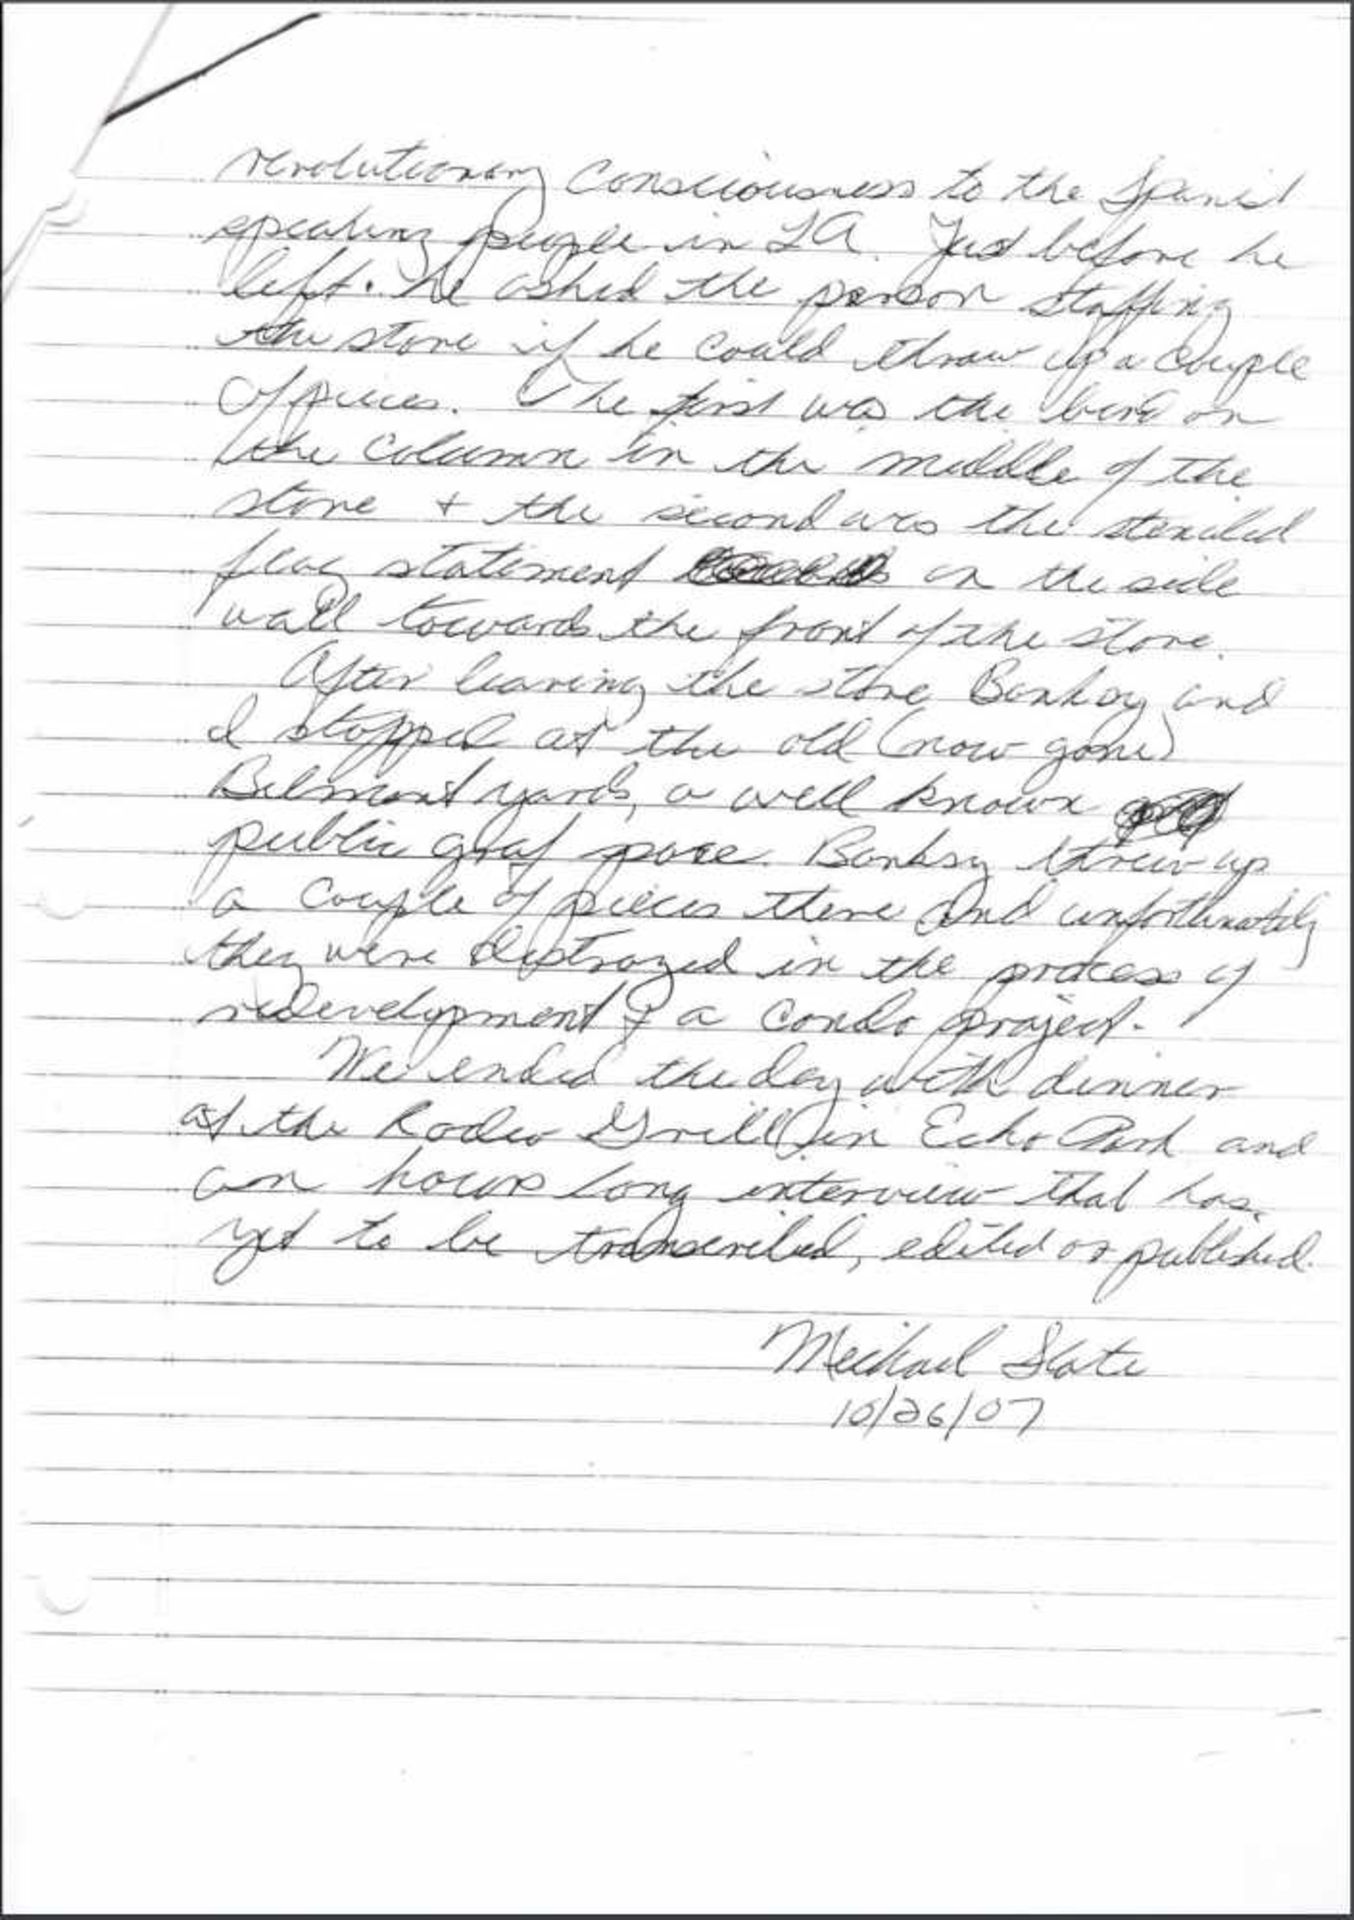 revolutionary consciousness to the Spanish
speaking people in LA. Just before he
left. he asked the person staffing
the store if he could throw up a couple
of pieces. The first was the bird on
the column in the middle of the
store + the second was the stenciled
flag statement on the side
wall towards the front of the store.
After leaving the store Banksy and
I stopped at the old (now gone)
Belmont yards, a well known
public graf space. Banksy threw up
a couple of pieces there and unfortunately
they were destroyed in the process of
redevelopment & a condo project.
We ended the day with dinner
at the Rodeo Grill in Echo Park and
an hours long interview that has
yet to be transcribed, edited or published.
Michael Slate
10/26/07